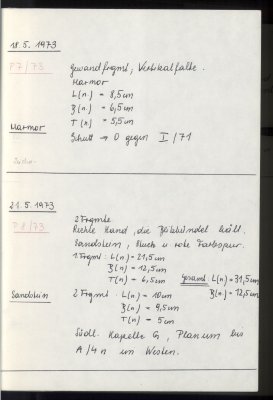 18.5.1973
P7/73
Gewandfrgmt, Vertikalfalte.
Marmor
L(n.) = 8,5cm
B(n.) = 6,5cm
T(n.) = 5,5cm
Marmor
Schutt → O gegen I/71
21.5.1973
P8/73
2 Frgmte
Rechte Hand, die
hält.
Sandstein, Stuck u rote Farbspur.
1. Frgmt: L(n) = 21,5cm
B(n) = 12,5cm
T(n) = 6,5cm
Gesamt: L(n) = 31,5cm
B(n) = 12,5cm
Sandstein
2 Frgmt: L(n) = 10cm
B(n) = 9,5cm
T(n) = 5cm
Südl. Kapelle G, Planum bis
A/4 n im Westen.